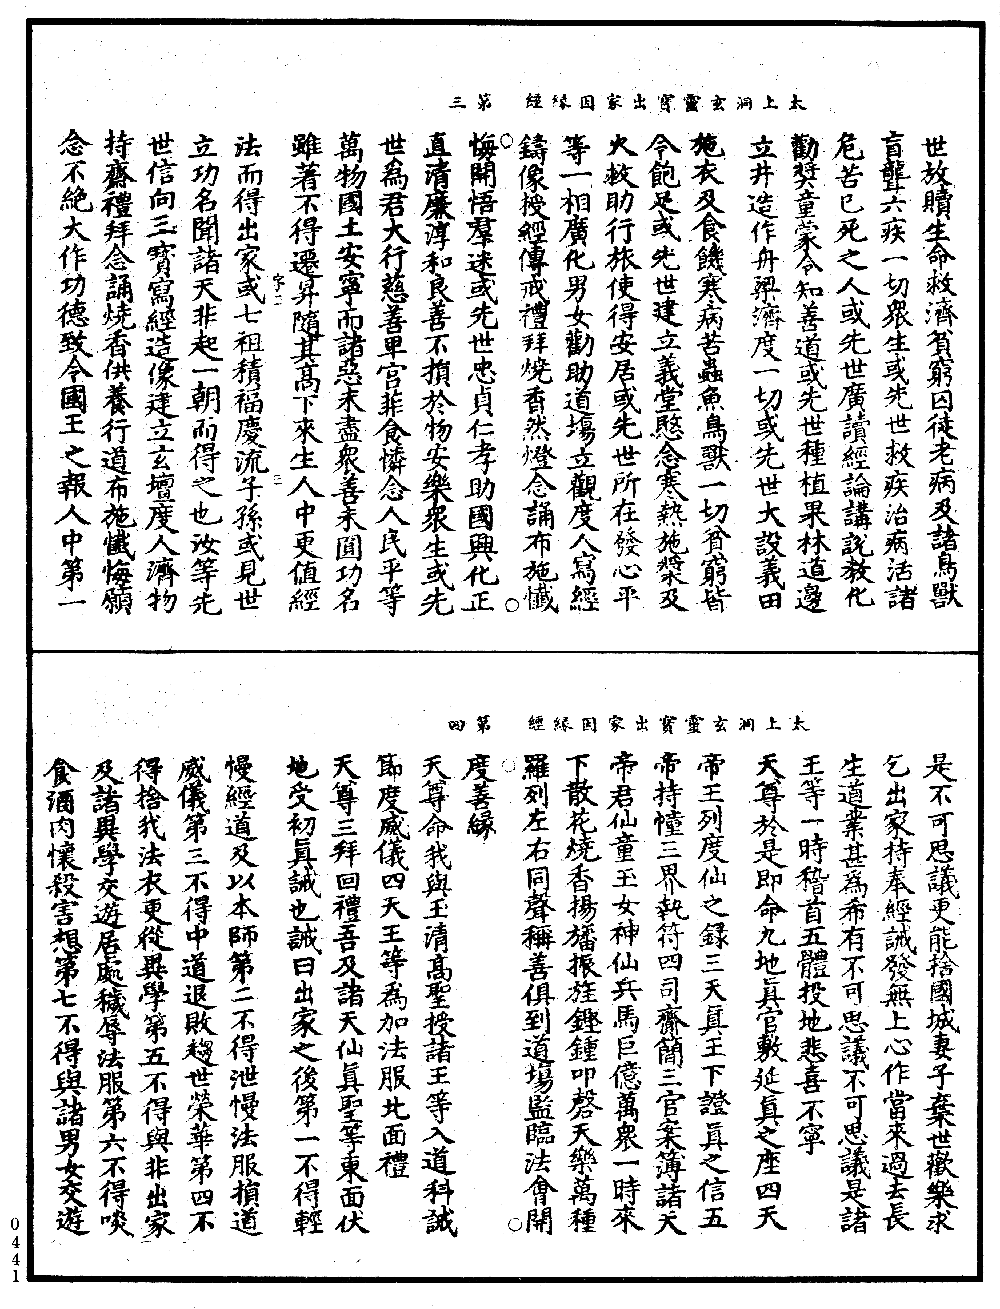 太上洞玄靈寶出家因緣經　第三
世放贖生命救濟貧窮囚徒老病及諸鳥獸
盲聾六疾一切眾生或先世救疾治病活諸
危苦已死之人或先世廣讀經論講說教化
勸獎童蒙令知善道或先世種植果林道邊
立井造作舟梁濟度一切或先世大設義田
施衣及食饑寒病苦蟲魚鳥獸一切貧窮皆
令飽足或先世建立義堂愍念寒熱施漿及
火救助行旅使得安居或先世所在發心平
等一相廣化男女勸助道場立觀度人寫經
鑄像授經傳戒禮拜燒香然燈念誦布施懺
悔開悟羣迷或先世忠貞仁孝助國興化正
直清廉淳和良善不損於物安樂眾生或先
世為君大行慈善卑宮菲食憐念人民平等
萬物國土安寧而諸惡未盡眾善未圓功名
雖著不得遷昇隨其高下來生人中更值經
字二　三
法而得出家或七祖積福慶流子孫或見世
立功名聞諸天非起一朝而得之也汝等先
世信向三寶寫經造像建立玄壇度人濟物
持齋禮拜念誦燒香供養行道布施懺悔願
念不絕大作功德致今國王之報人中第一
太上洞玄靈寶出家因緣經　第四
是不可思議更能捨國城妻子棄世歡樂求
乞出家持奉經誡發無上心作當來過去長
生道業甚為希有不可思議不可思議是諸
王等一時稽首五體投地悲喜不寧
天尊於是即命九地真官敷延真之座四天
帝王列度仙之錄三天真王下證真之信五
帝持幢三界執符四司齎簡三官案簿諸天
帝君仙童玉女神仙兵馬巨億萬眾一時來
下散花燒香揚旛振旌鏗鍾叩磬天樂萬種
羅列左右同聲稱善俱到道場監臨法會開
度善緣
天尊命我與玉清高聖授諸王等入道科誡
節度威儀四天王等為加法服北面禮
天尊三拜回禮吾及諸天仙真聖等東面伏
地受初真誡也誡曰出家之後第一不得輕
慢經道及以本師第二不得泄慢法服損道
威儀第三不得中道退敗趨世榮華第四不
得捨我法衣更從異學第五不得與非出家
及諸異學交遊居處穢辱法服第六不得啖
食酒肉懷殺害想第七不得與諸男女交遊
0441